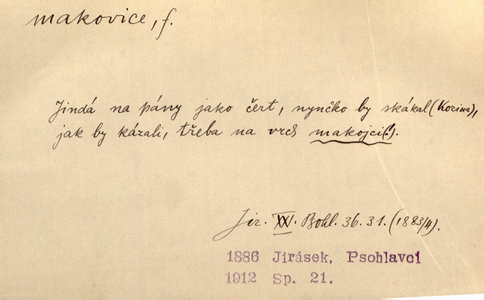 makovice, f.
Jindá na pány jako čert, nynčko by skákal (Kozina),
jak by kázali, třeba na vrch makojci(!).
Jir. XXI. Bohl. 36. 31. (1883/4).
1886 Jirásek, Psohlavci
1912 Sp. 21.